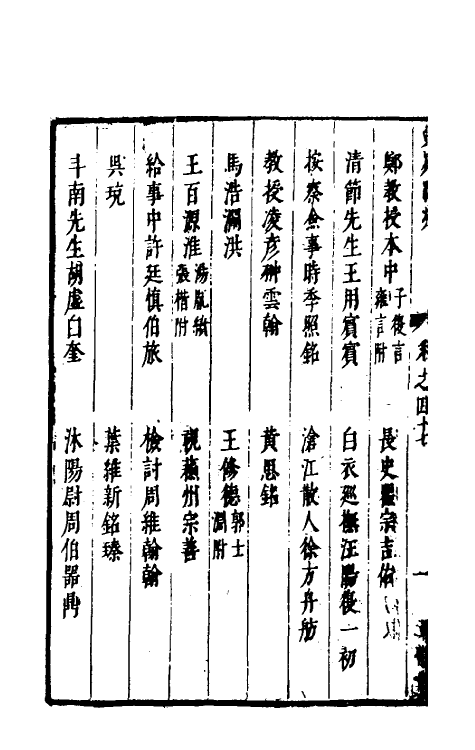 卷之四十七
鄭教授本中 子復言 雍言附
長史瞿宗吉佑
清節先生王用賓賓
白衣巡撫汪陽復一初
按察僉事時季照銘
滄江散人徐方舟舫
教授凌彥翀雲翰
黃思銘
馬浩瀾洪
王修德 郭士淵附
王百源淮 湯胤勣 張楷附
祝蘋州宗善
給事中許廷慎伯旅
檢討周維翰翰
吳琬
葉維新銘臻
斗南先生胡虛白奎
沐陽尉周伯器鼎